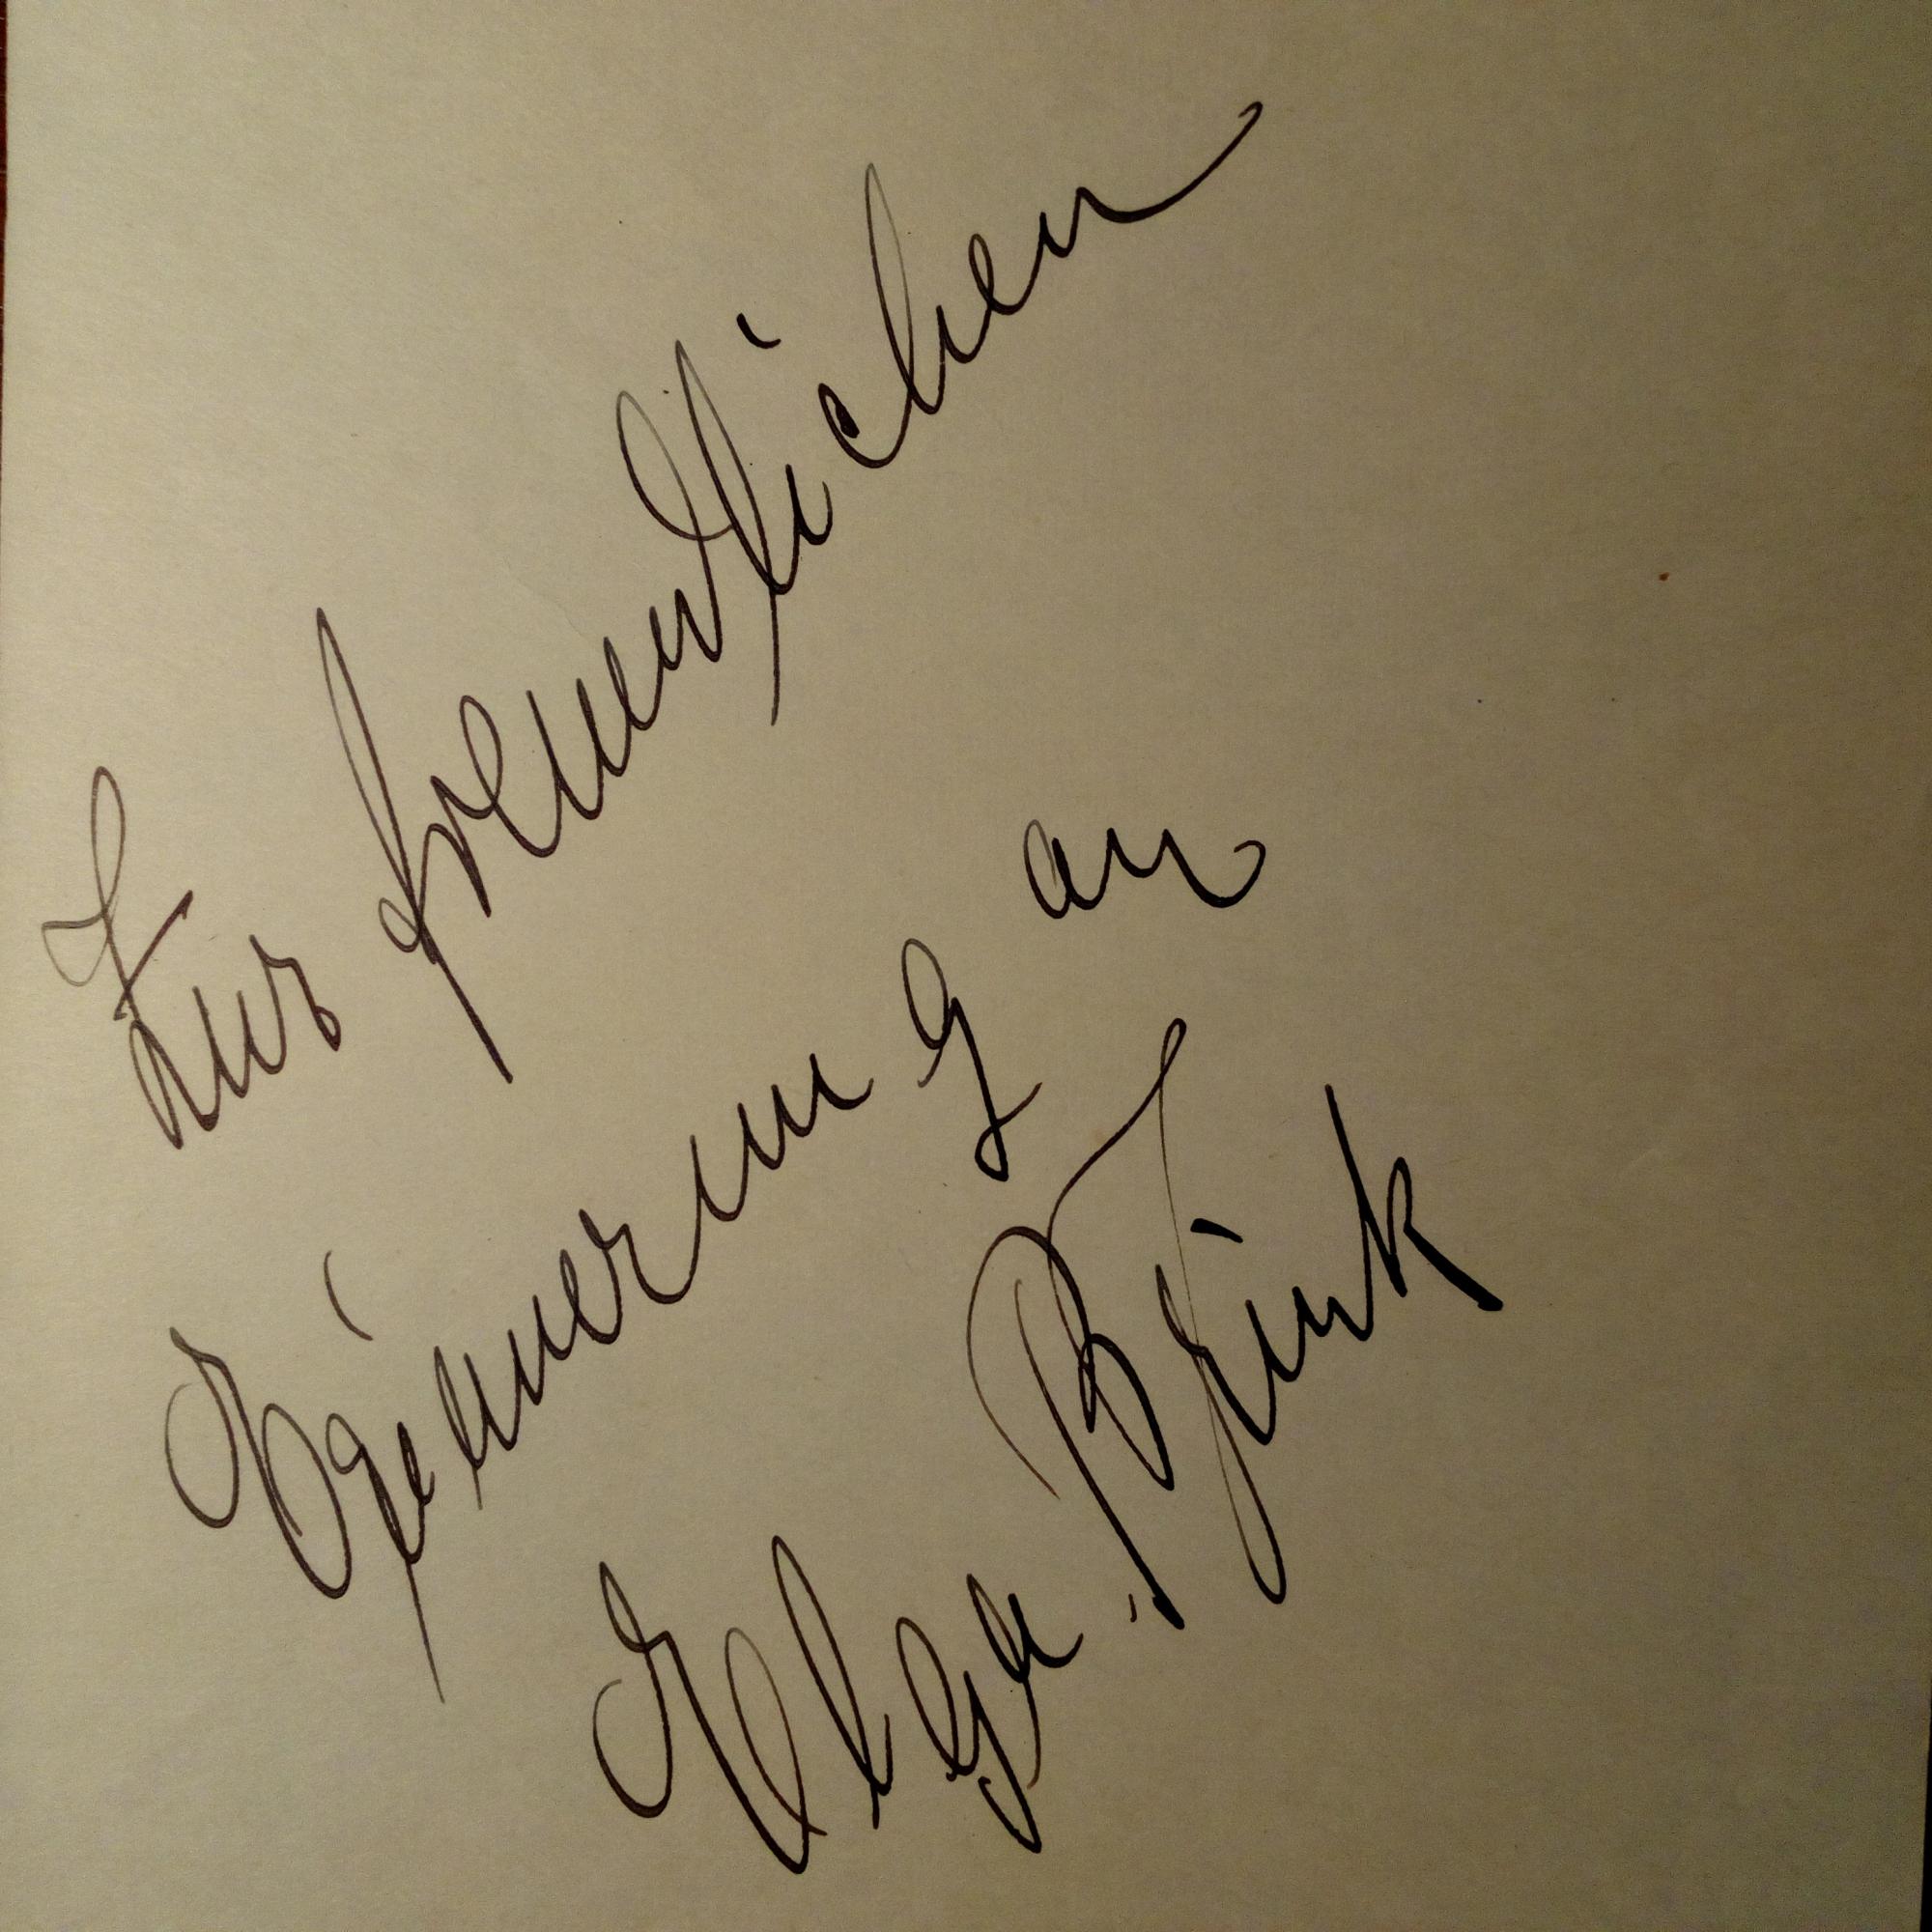 Zur freundlichen
Erinnerung an
Elga Brink